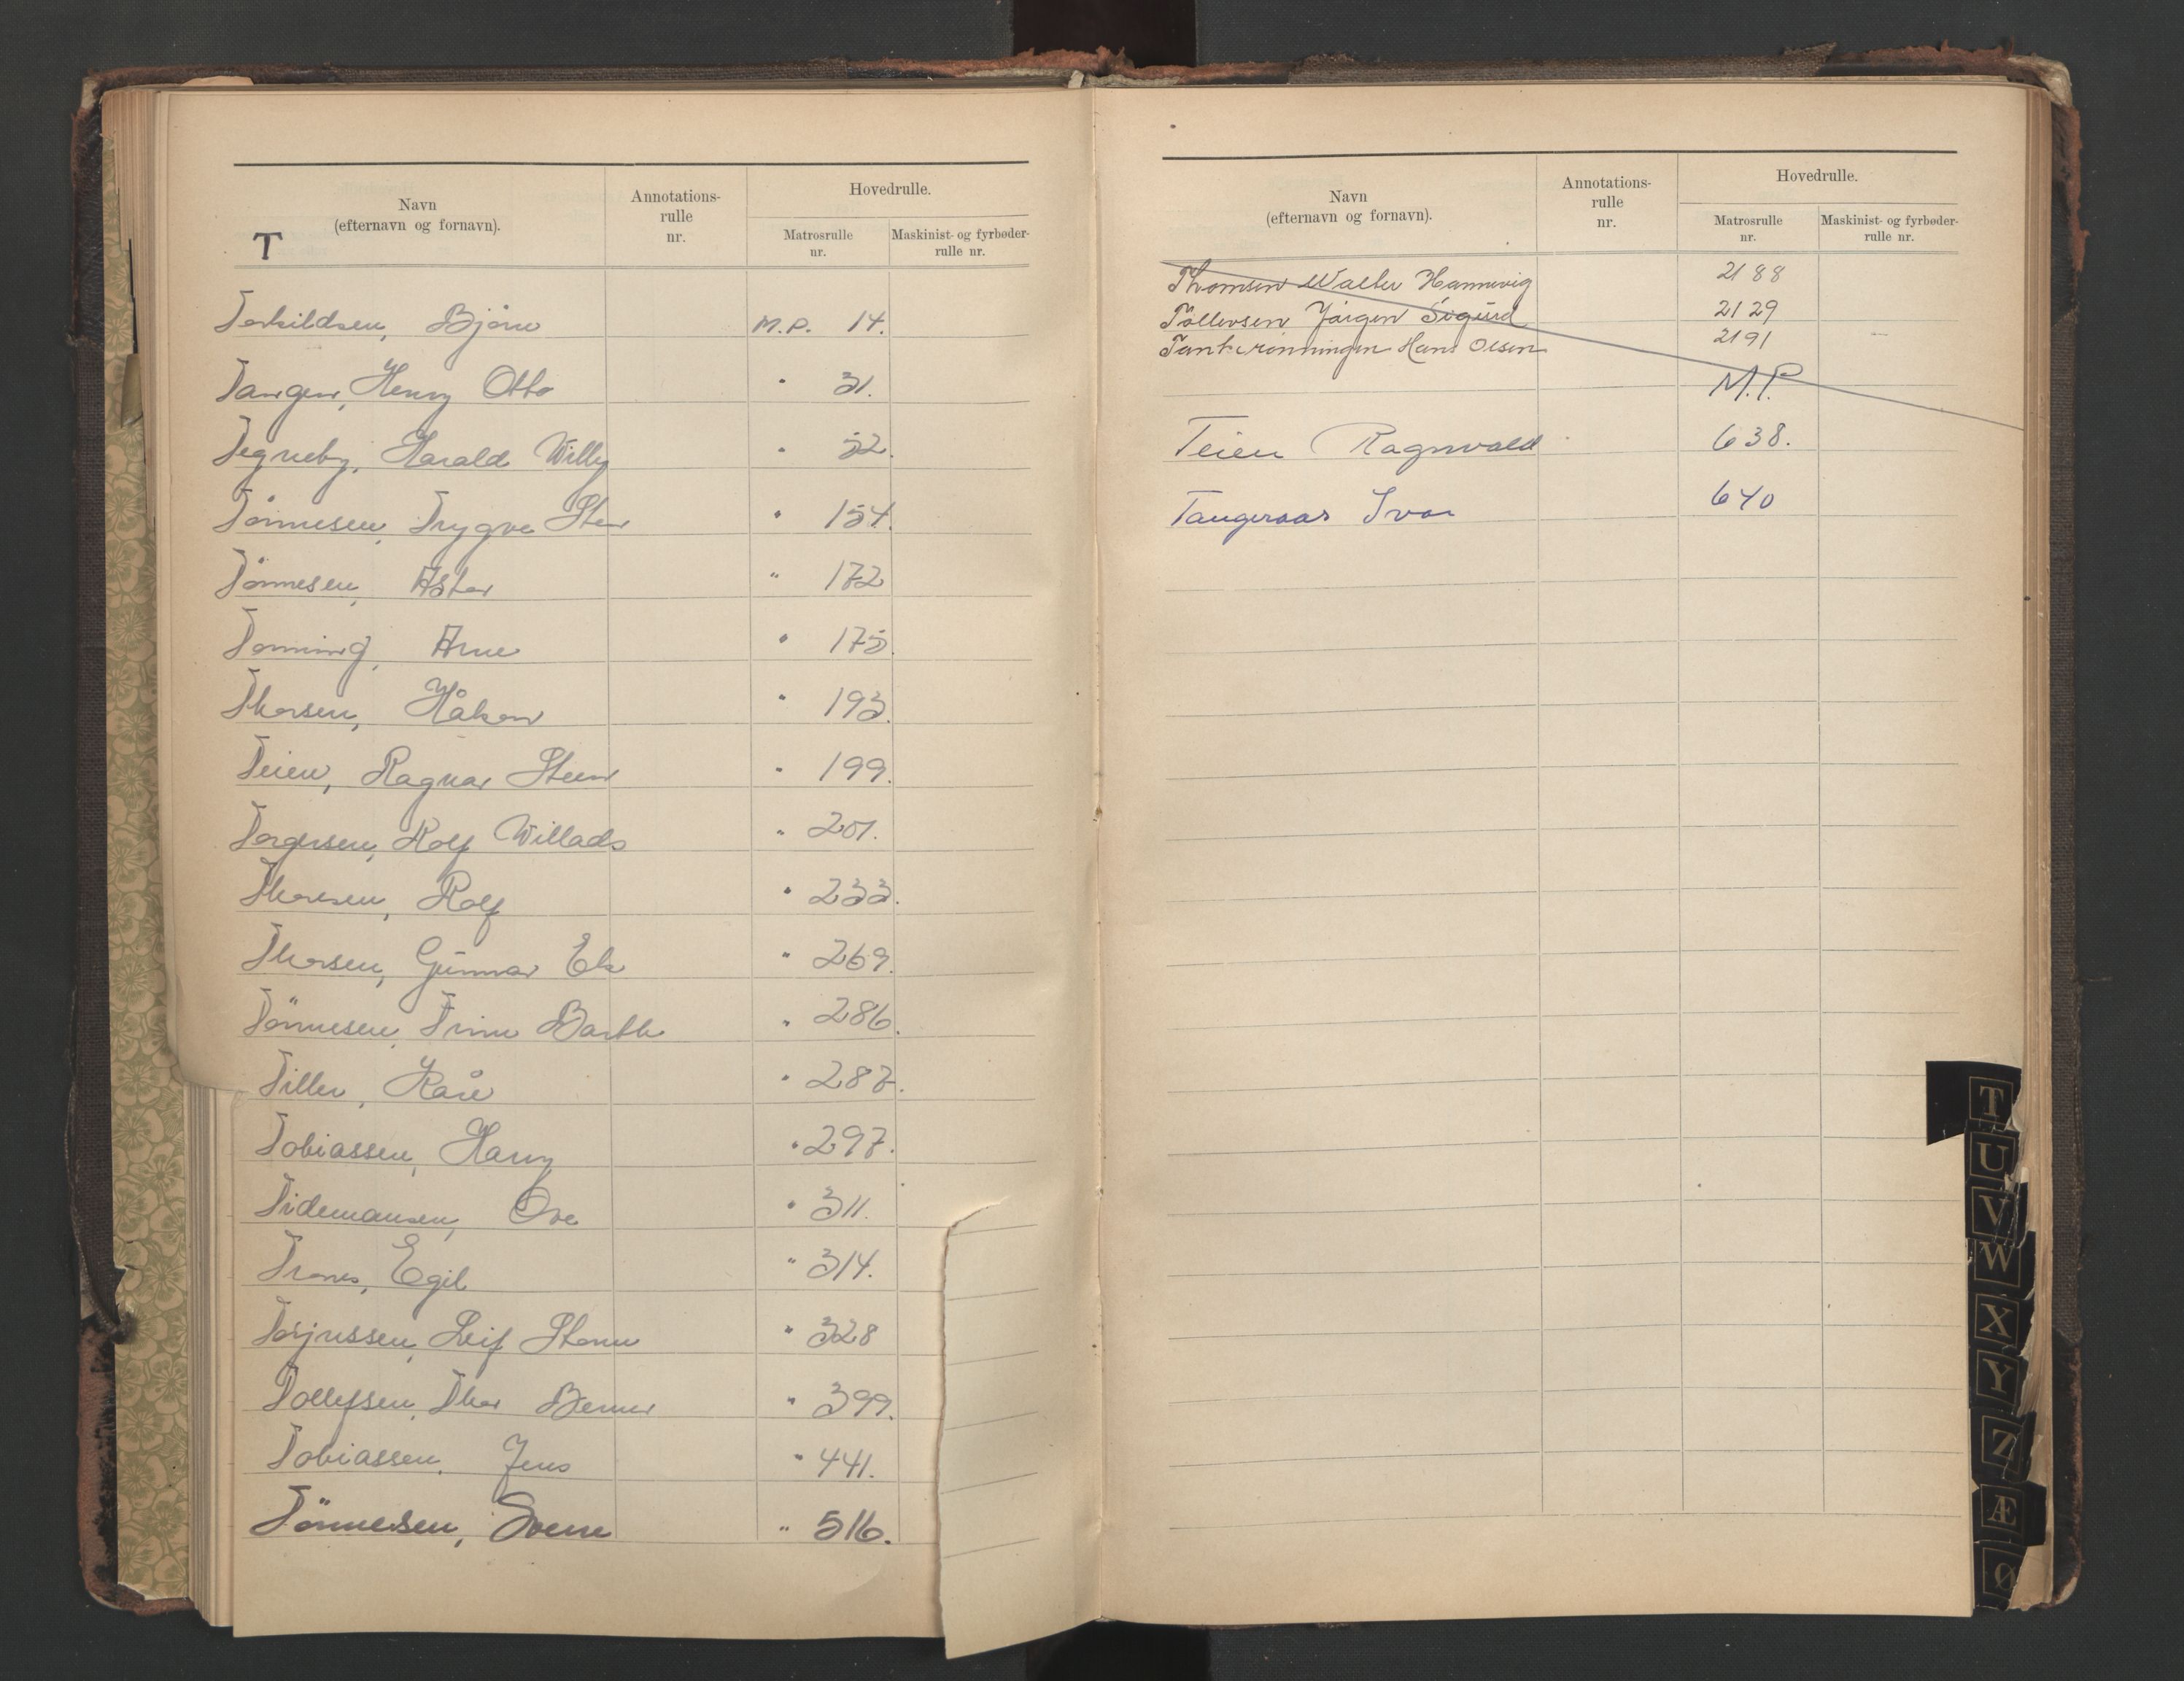 T
Navn
(efternavn og fornavn).
Annotations-
rulle
nr.
Hovedrulle.
Matrosrulle
nr.
Maskinist- og fyrbøder-
rulle nr.
Torkildsen, Björn M.P. 14.
Tangen, Henry Otto " 31.
Tegneby, Harald Willy " 52.
Tönnesen, Trygve Sten " 154.
Tönnesen, " 172
Tonning, Arne " 175.
Thorsen, Håkon " 193.
Teien, Ragnar Steen " 199.
Torgersen, Rolf Willads " 201.
Thoresen, Rolf " 233.
Thorsen, Gunnar Ek " 269.
Tönnesen, Finn Barth " 286.
Tiller, Kåre " 287.
Tobiassen, Harry " 297.
Tidemansen, Ove " 311.
Trones, Egil " 314.
Torjussen, Leif Storm " 328
Tollefsen, Thor Berner " 399.
Tobiassen, Jens " 441.
Tönnessen, Sverre " 516.
Navn
(efternavn og fornavn).
Annotations-
rulle
nr.
Hovedrulle.
Matrosrulle
nr.
Maskinist- og fyrbøder-
rulle nr.
Thomsen Walter Hannevig 2188
Tollevsen Jörgen Sigurd 2129
Hans Olsen 2191
M.P.
Teien Ragnvald 638.
Tangeraas Ivar 640
T
U
V
W
X
Y
Z
Æ
Ø